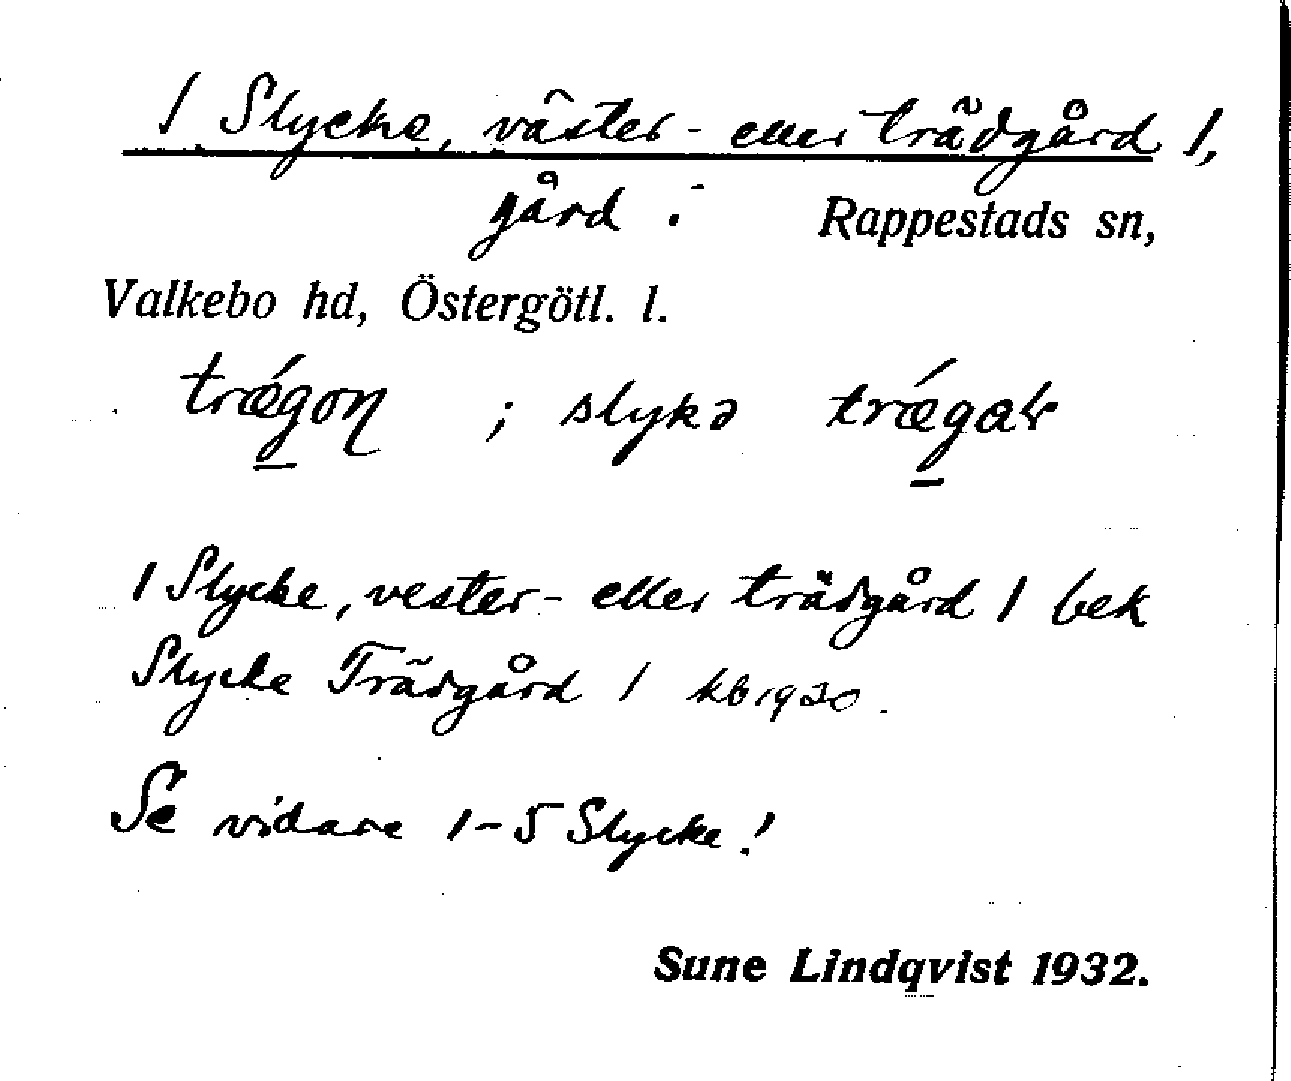 1 Slycke, väster- eller trädgård 1,
gård i Rappestads sn,
Valkebo hd, Östergötl. l.
trǽgoɳ ; slykə trǽgaɽ
1 Slycke, vester- eller trädgård 1 bek
Slycke Trädgård 1 kb 1920.
Se vidare 1-5 Slycke!
Sune Lindqvist 1932.